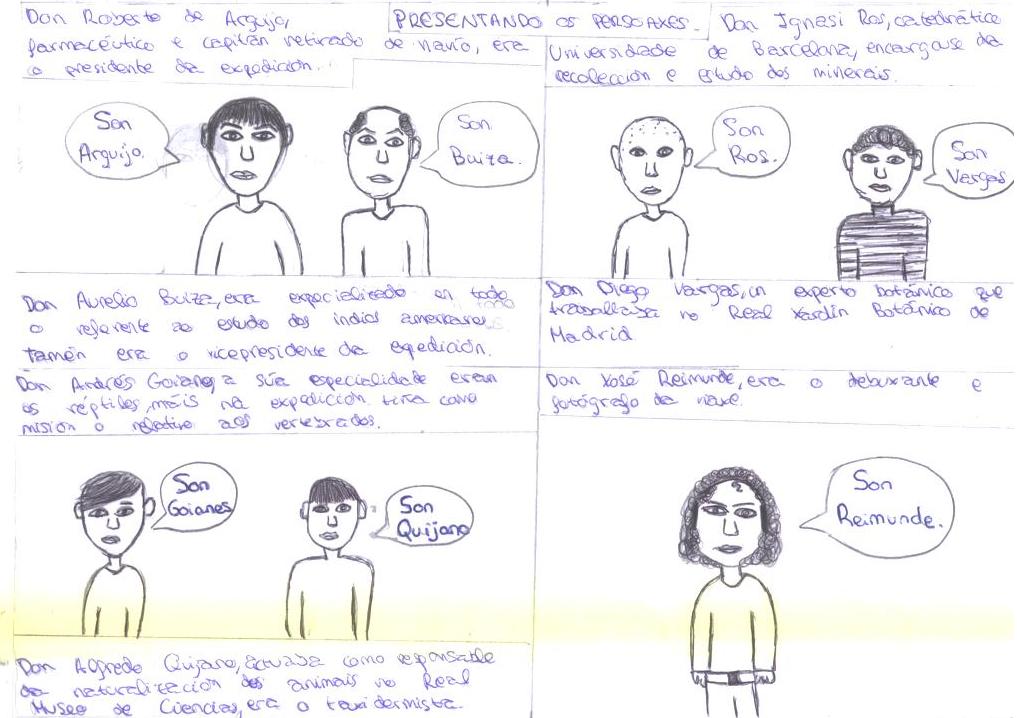 PRESENTANDO OS PERSOAXES.
Don Roberto de Arguijo,
farmacéutico e capitán retirado de navío, era
o presidente da expedición.
Son
Arguijo.
Son
Buiza.
Don Aurelio Buiza, era expecializado en todo
o referente ao estudo dos indios americanos.
Tamén era o vicepresidente da expedición.
Don Ignasi Ros, catedrático
Universidade de Barcelona, encargouse da
recolección e estudo dos minerais.
Son
Ros.
Son
Vargas
Don Diego Vargas, un experto botánico que
traballaba no Real Xardín Botánico de
Madrid
Don Andrés Goianes, a súa especialidade eran
os réptiles, máis na expedición tiña como
misión o relativo aos vertebrados.
Son
Goianes
Son
Quijano
Don Alfredo Quijano, actuaba como responsable
da naturalización dos animais no Real
Museo de Ciencias, era o taxidermista.
Don Xosé Reimunde, era o debuxante e
fotógrafo da nave.
Son
Reimunde.